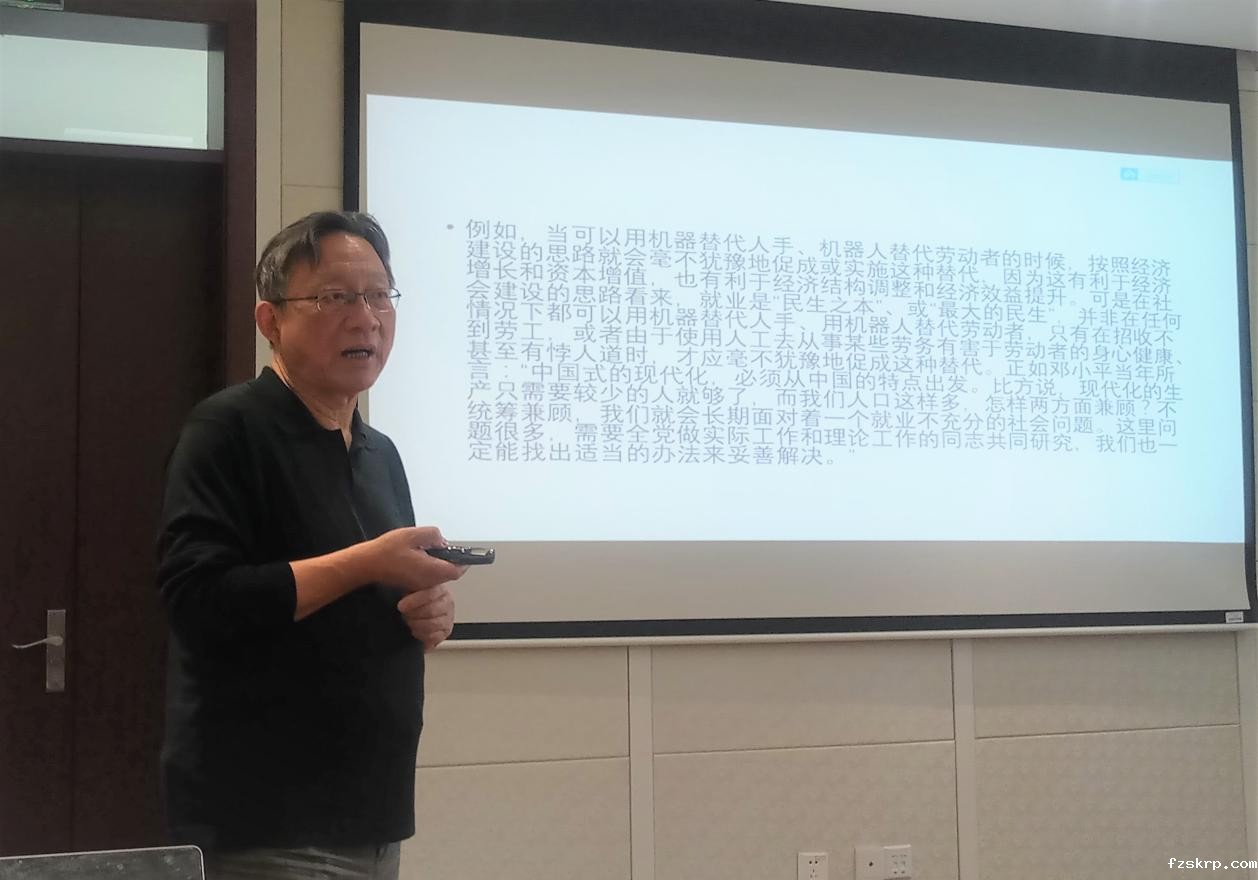 • 例如，当可以用机器替代人手、机器人替代劳动者的时候，按照经济
建设的思路就会毫不犹豫地促成或实施这种替代，因为这有利于经济
增长和资本增值，也有利于经济结构调整和经济效益提升。可是在社
会建设的思路看来，就业是“民生之本”、或“最大的民生”，并非在任何
情况下都可以用机器替代人手、用机器人替代劳动者，只有在招收不
到劳工，或者由于使用人工去从事某些劳务有害于劳动者的身心健康、
甚至有悖人道时，才应毫不犹豫地促成这种替代。正如邓小平当年所
言：“中国式的现代化，必须从中国的特点出发。比方说，现代化的生
产只需要较少的人就够了，而我们人口这样多，怎样两方面兼顾？不
统筹兼顾，我们就会长期面对着一个就业不充分的社会问题。这里问
题很多，需要全党做实际工作和理论工作的同志共同研究，我们也一
定能找出适当的办法来妥善解决。”
fzskrp.com